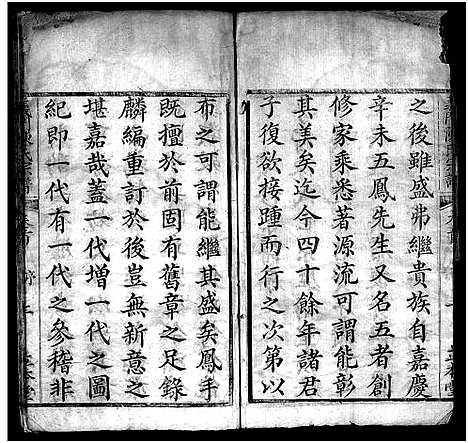 之後雖盛弗繼貴族自嘉慶
辛未五鳳先生又名五者創
修家乘悉著源流可謂能彰
其美矣迄今四十餘年諸君
子復欲接踵而行之次第以
布之可謂能繼其盛矣鳳手
既擅於前固有舊章之足錄
麟編重訂於後豈無新意之
堪嘉哉蓋一代增一代之圖
紀即一代有一代之參稽非